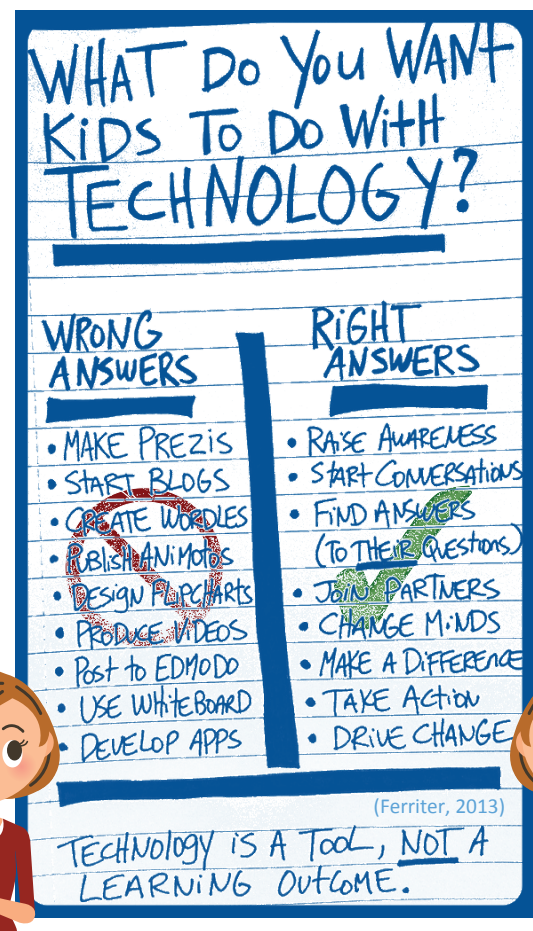 WHAT DO YOU WANT
KiDS TO DO WitH
TECHNOLOGY?
WRONG
ANSWERS
• MAKE PREZiS
• START BLOGS
• CREATE WORDLES
• PUBLiSH ANiMOTOS
• DESiGN FLiPCHARTS
• PRODUCE ViDEOS
• POST to EDMODO
• USE WHiTEBOARD
• DEVELOP APPS
RiGHT
ANSWERS
• RAiSE AWARENESS
• START CONVERSATiONS
• FiND ANSWERS
(TO THEiR QUESTiONS)
• JOiN PARTNERS
• CHANGE MiNDS
• MAKE A DiFFERENCE
• TAKE ACTiON
• DRiVE CHANGE
(Ferriter, 2013)
TECHNOLOGY iS A TOOL, NOT A
LEARNiNG OUTCOME.